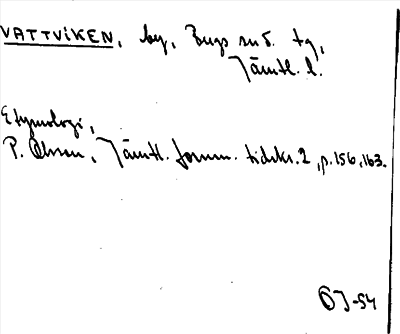 VATTVIKEN, by, Bergs sn o. tg,
Jämtl. l.
Etymologi,
P. Olsson, Jämtl. fornm. tidskr. 2, p. 156, 163.
ÖJ-54